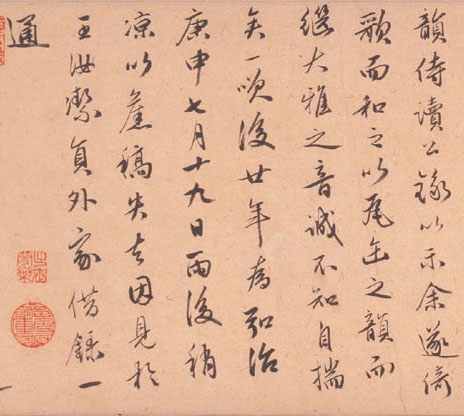 韻侍讀公錄以示余遂倚
歌而和之以瓦缶之韻而
繼大雅之音誠不知自揣
矣一咲後廿年為弘治
庚申七月十九日雨後稍
涼以舊稿失去因見於
王汝絜員外家借錄一
通